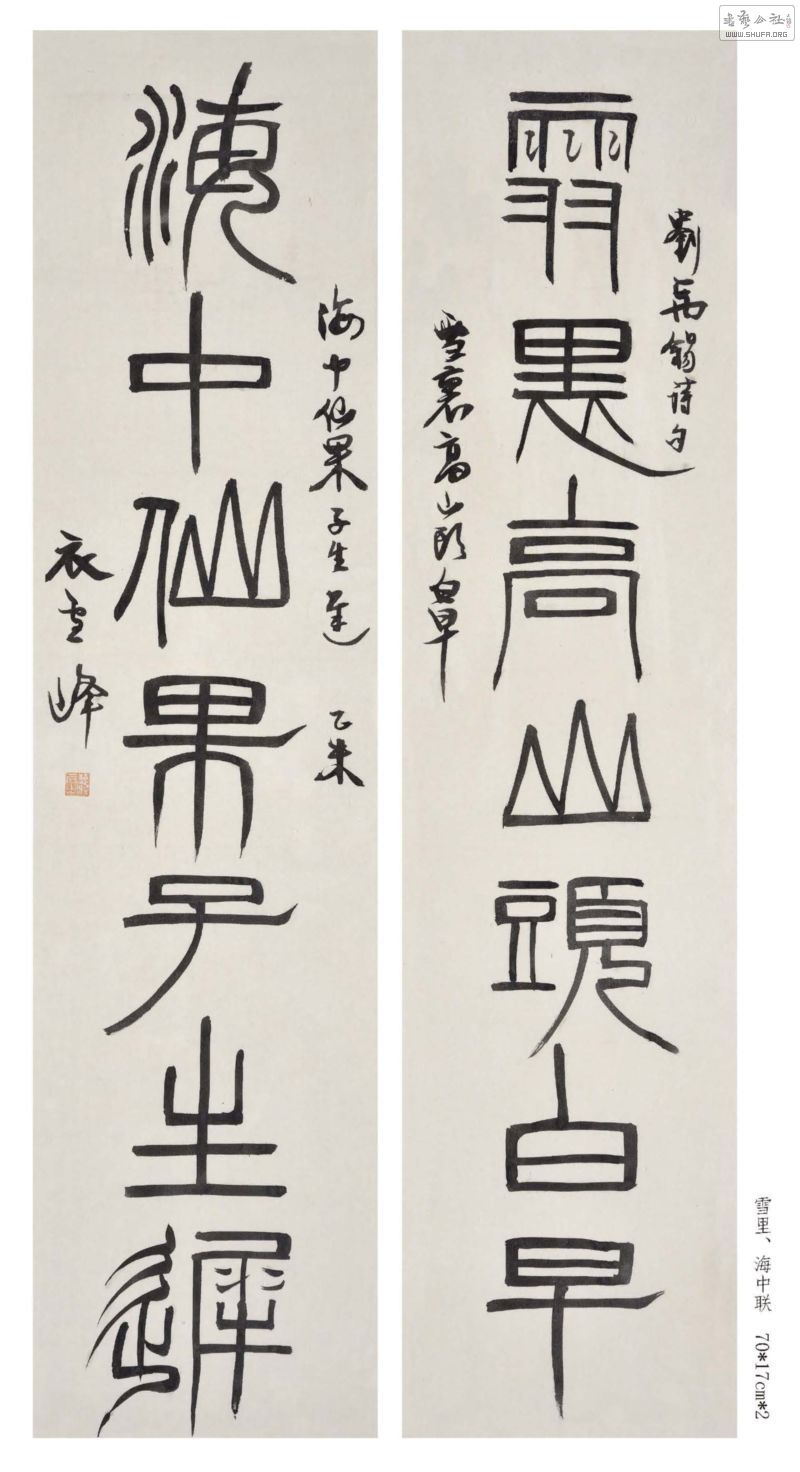 書藝公社
WWW.SHUFA.ORG
雪裏高山頭白早
劉禹錫詩句
雪裏高山頭白早
海中仙果子生遲
海中仙果子生遲 乙未
衣雪峰
雪里、海中联 70*17cm*2